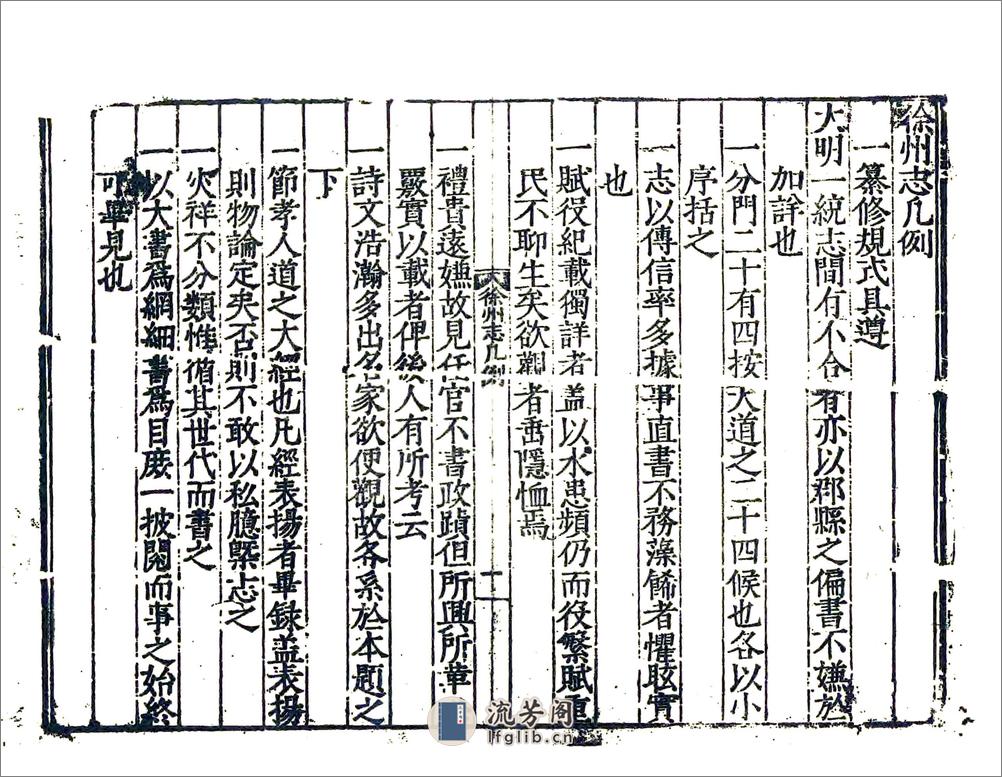 徐州志凡例
一纂修規式具遵
大明一統志間有不合者亦以郡縣之偏書不嫌於
加詳也
一分門二十有四按天道之二十四候也各以小
序括之
一志以傳信率多據事直書不務藻餙者懼眩實
也
一賦役紀載獨詳者盖以水患頻仍而役繁賦重
民不聊生矣欲觀者垂隱恤焉
徐州志凡例
一
一禮貴遠嫌故見任官不書政蹟但所興所革
覈實以載者俾後人有所考云
一詩文浩瀚多出名家欲便觀故各系於本題之
下
一節孝人道之大經也凡經表揚者畢録盖表揚
則物論定矣否則不敢以私臆槩志之
一灾祥不分類惟循其世代而書之
一以大書為綱細書為目庻一披閱而事之始終
可畢見也
流芳阁
lfglib.cn